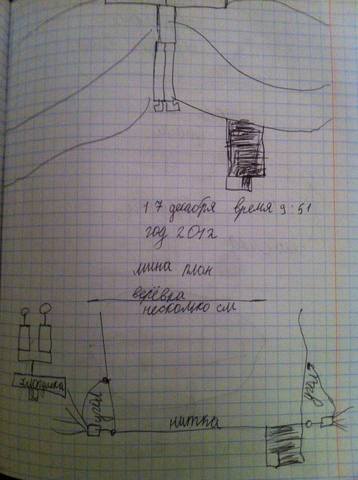 17 декабря время 9:51
год 2012
мина план
верёвка
несколько см
угол
угол
нитка